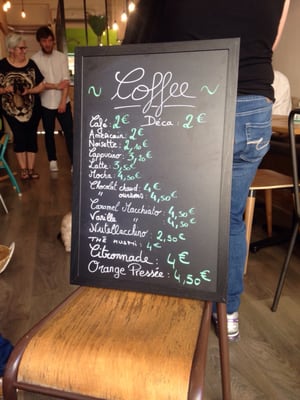 ~ Coffee ~
Café: 2€ Déca: 2€
Américain: 2€
Noisette: 2,10€
Cappucino: 3,20€
Latte: 3,50€
Mocha: 4,50€
Chocolat chaud: 4€
" oursons: 4,50€
Caramel Macchiato: 4,50€
Vanille " 4,50€
Nutellacchino: 2,50€
THÉ : 4€
Citronnade: 4€
Orange Pressée: 4,50€